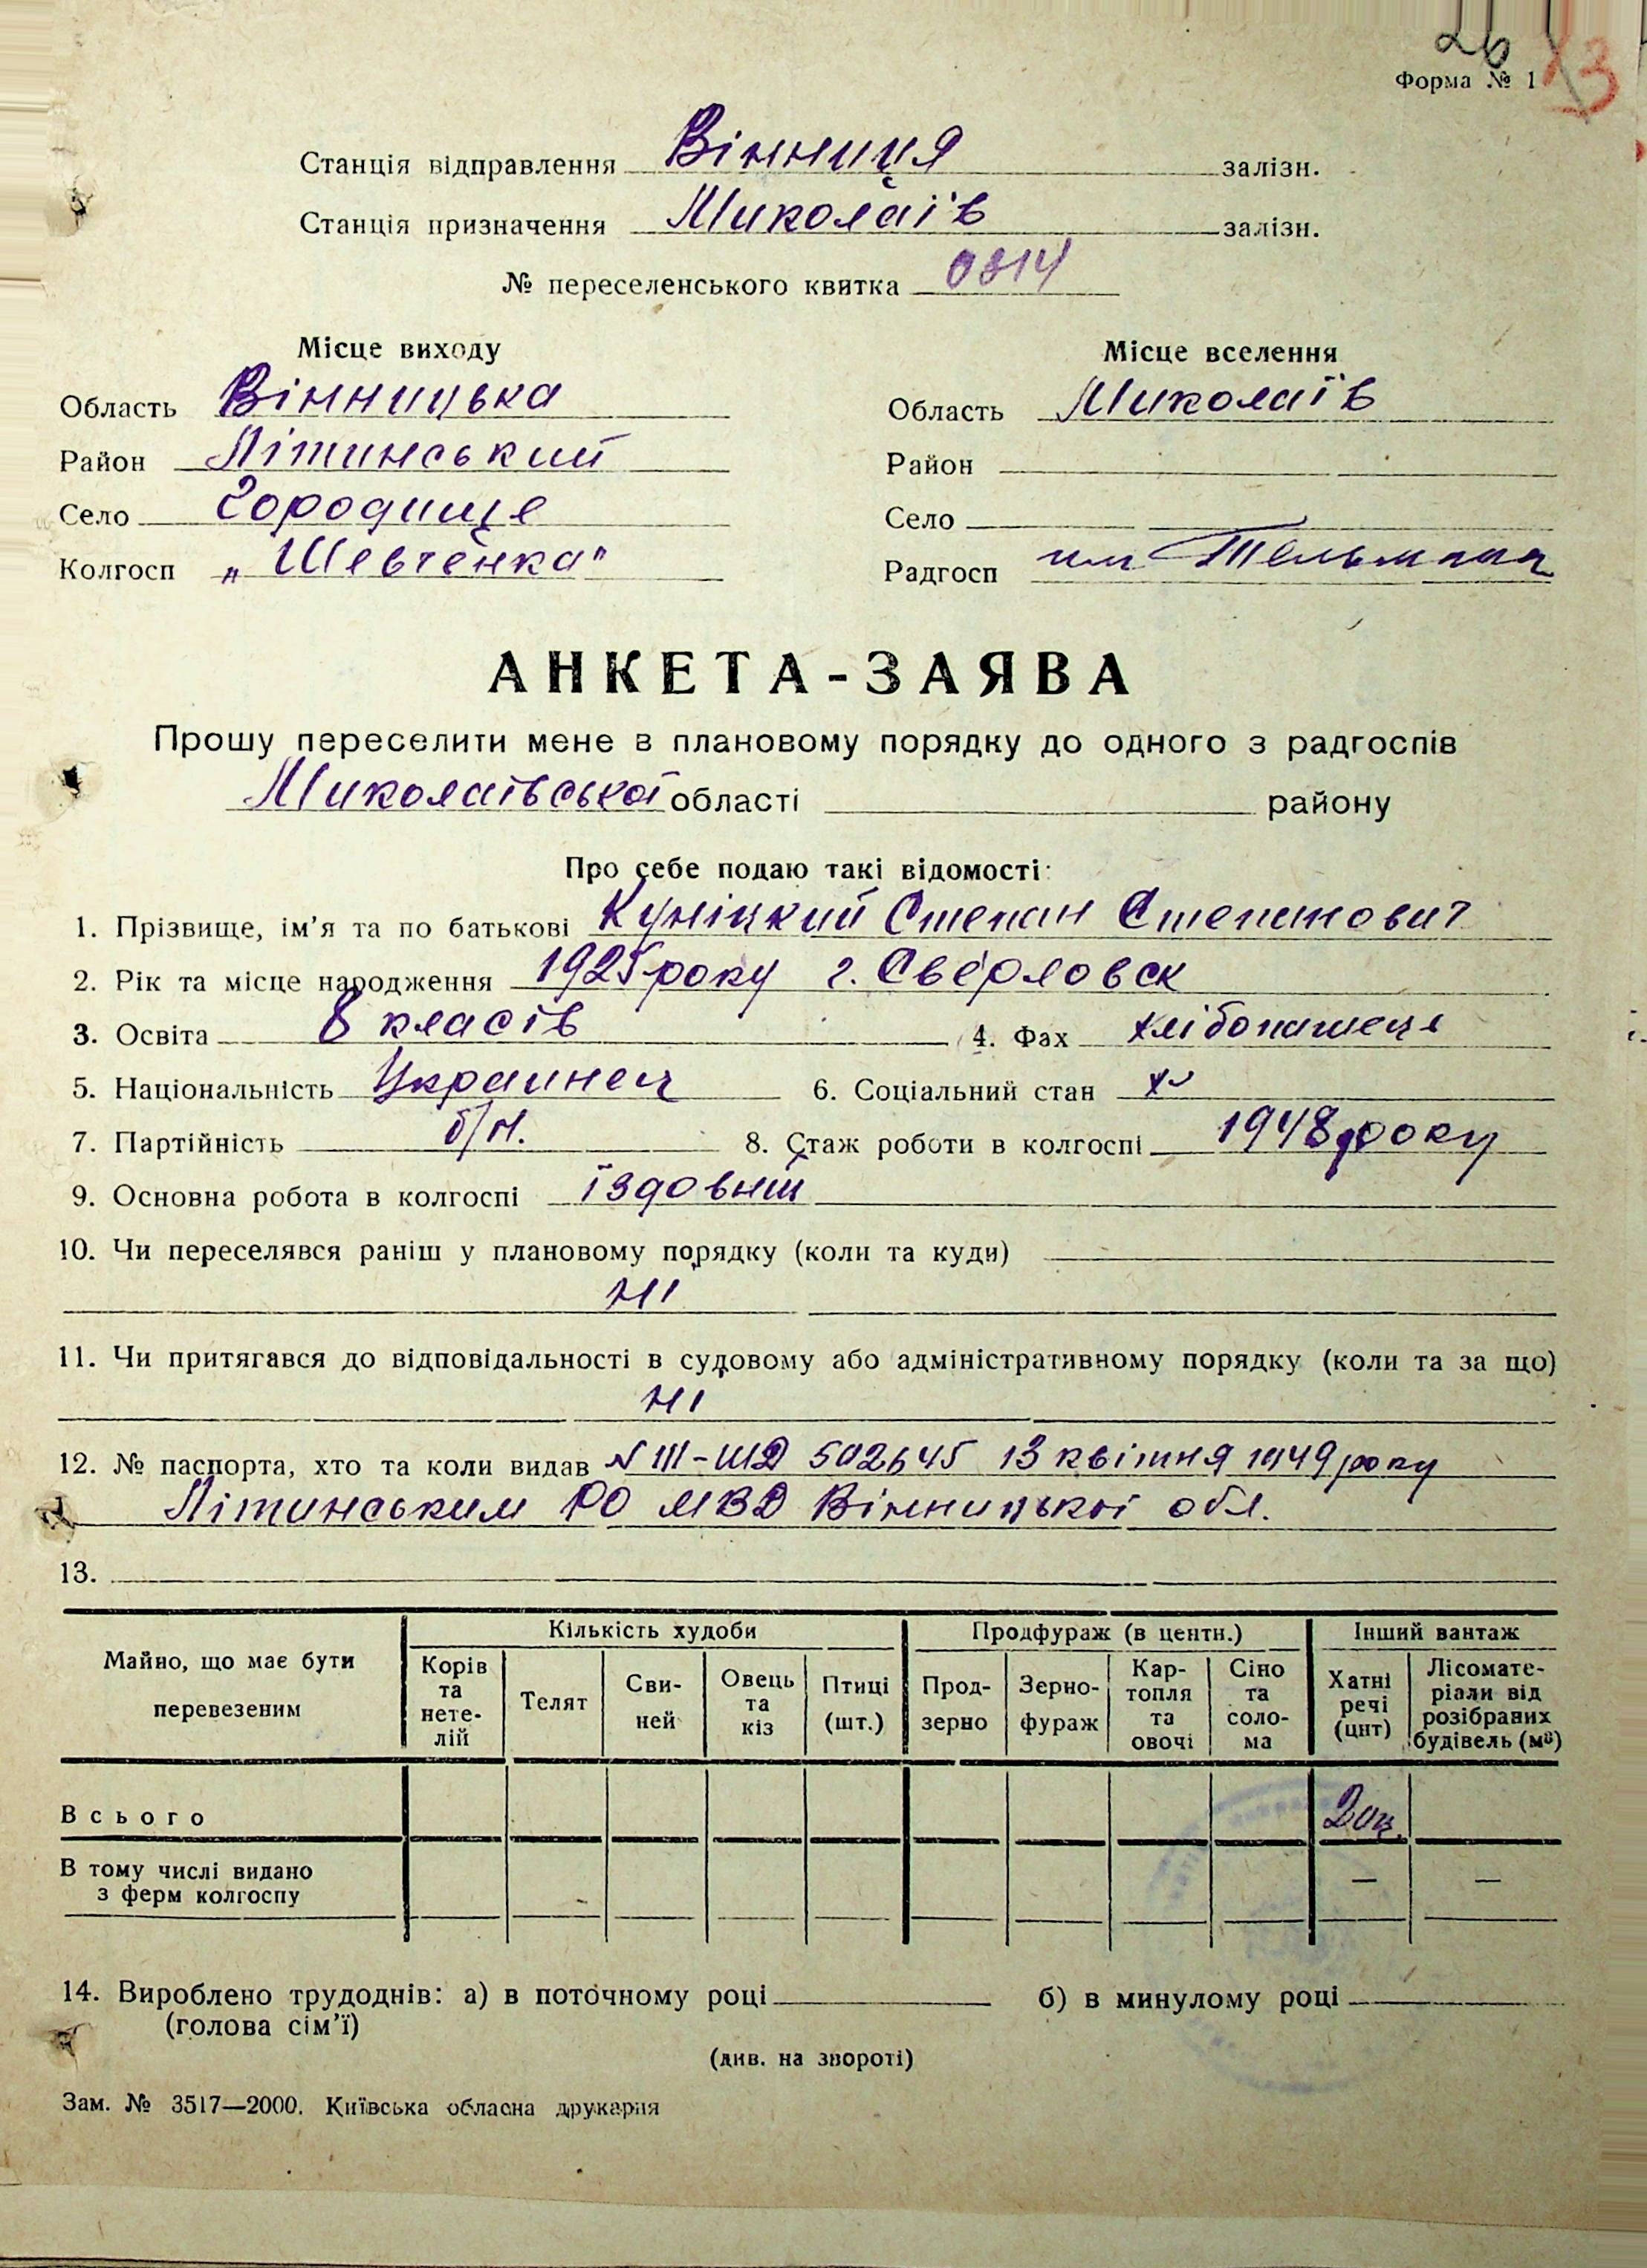 26 13
Форма № 1
Станція відправлення Вінниця залізн.
Станція призначення Миколаїв залізн.
№ переселенського квитка 0314
Місце виходу Місце вселення
Область Вінницька Область Миколаїв
Район Літинський Район
Село Городище Село
Колгосп „Шевченка" Радгосп им Тельмана
АНКЕТА-ЗАЯВА
Прошу переселити мене в плановому порядку до одного з радгоспів
Миколаївської області району
Про себе подаю такі відомості:
1. Прізвище, ім’я та по батькові Куніцкий Степан Степанович
2. Рік та місце народження 1925 року г. Свердловск
3. Освіта 8 класів 4. Фах хлібопашець
5. Національність Украинец 6. Соціальний стан
7. Партійність б/п. 8. Стаж роботи в колгоспі 1948 року
9. Основна робота в колгоспі їздовий
10. Чи переселявся раніш у плановому порядку (коли та куди)
ні
11. Чи притягався до відповідальності в судовому або адміністративному порядку (коли та за що)
ні
12. № паспорта, хто та коли видав N III-ШД 502645 13 квітня 1949 року
Літинським РО МВД Вінницької обл.
13.
Майно, що має бути перевезеним
Кількість худоби Продфураж (в центн.) Інший вантаж
Корів та нете-лій Телят Сви-ней Овець та кіз Птиці (шт.) Прод-зерно Зерно-фураж Кар-топля та овочі Сіно та соло-ма Хатні речі (цнт) Лісомате-ріали від розібраних будівель (м³)
Всього 20ц.
В тому числі видано — —
з ферм колгоспу
14. Вироблено трудоднів: а) в поточному році б) в минулому році
(голова сім’ї)
(див. на звороті)
Зам. № 3517—2000. Київська обласна друкарня